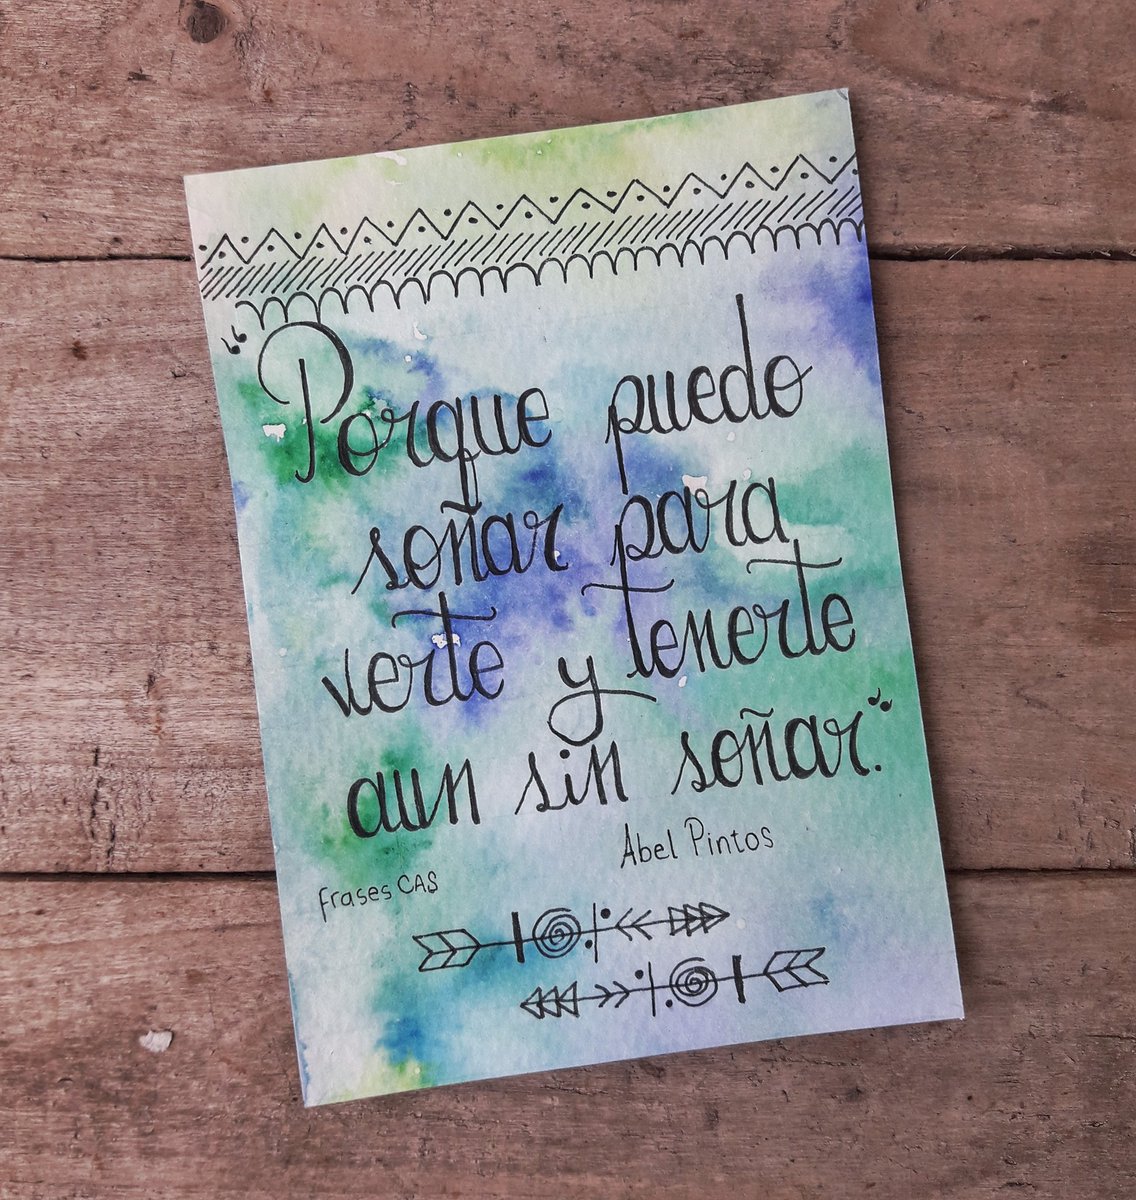 “Porque puedo
soñar para
verte y tenerte
aun sin soñar.”
Abel Pintos
frases CAS